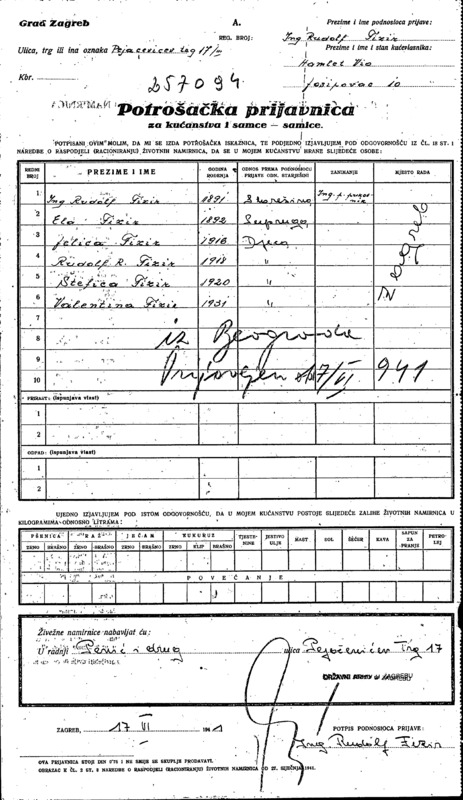 Grad Zagreb
A.
Prezime i ime podnosioca prijave:
REG. BROJ:
Ing Rudolf Fizir
Ulica, trg ili ina oznaka Pejačevićev trg 17/III
Prezime i ime i stan kućevlasnika:
Hamlet Vio
Kbr.
257094
Josipovac 10
Potrošačka prijavnica
za kućanstva i samce — samice.
POTPISANI OVIM MOLIM, DA MI SE IZDA POTROŠAČKA ISKAZNICA, TE PODJEDNO IZJAVLJUJEM POD ODGOVORNOŠĆU IZ ČL. 18 ST. 1
NAREDBE O RASPODJELI (RACIONIRANJU) ŽIVOTNIH NAMIRNICA, DA SE U MOJEM KUĆANSTVU HRANE SLIJEDEĆE OSOBE:
REDNI BROJ PREZIME I IME GODINA ROĐENJA ODNOS PREMA PODNOSIOCU PRIJAVE ODN. STARJEŠINI ZANIMANJE MJESTO RADA
1 Ing Rudolf Fizir 1891 Starešina
2 Ela Fizir 1892 Supruga
3 Jelica Fizir 1916 Djeca
4 Rudolf R. Fizir 1918 "
5 Štefica Fizir 1920 "
6 Valentina Fizir 1931 "
Zagreb
7
8 iz Beograda
9 Prijavljen 17/VI 941
10
PRIRAST: (ispunjava vlast)
1
2
OTPAD: (ispunjava vlast)
1
2
UJEDNO IZJAVLJUJEM POD ISTOM ODGOVORNOŠĆU, DA U MOJEM KUĆANSTVU POSTOJE SLIJEDEĆE ZALIHE ŽIVOTNIH NAMIRNICA U
KILOGRAMIMA ODNOSNO LITRAMA:
PŠENICA RAŽ JEČAM KUKURUZ TJESTENINE JESTIVO ULJE MAST SOL ŠEĆER KAVA SAPUN ZA PRANJE PETROLEJ
ZRNO BRAŠNO ZRNO BRAŠNO ZRNO BRAŠNO ZRNO KLIP BRAŠNO
POVEĆANJE
Živežne namirnice nabavljat ću:
U radnji Penić i drug ulica Pejačevićev Trg 17
DRŽAVNI ARHIV U ZAGREBU
ZAGREB, 17 VI 1941
POTPIS PODNOSIOCA PRIJAVE:
Ing Rudolf Fizir
OVA PRIJAVNICA STOJI DIN 0'75 I NE SMIJE SE SKUPLJE PRODAVATI.
OBRAZAC K ČL. 2 ST. 2 NAREDBE O RASPODJELI (RACIONIRANJU) ŽIVOTNIH NAMIRNICA OD 27. SIJEČNJA 1941.